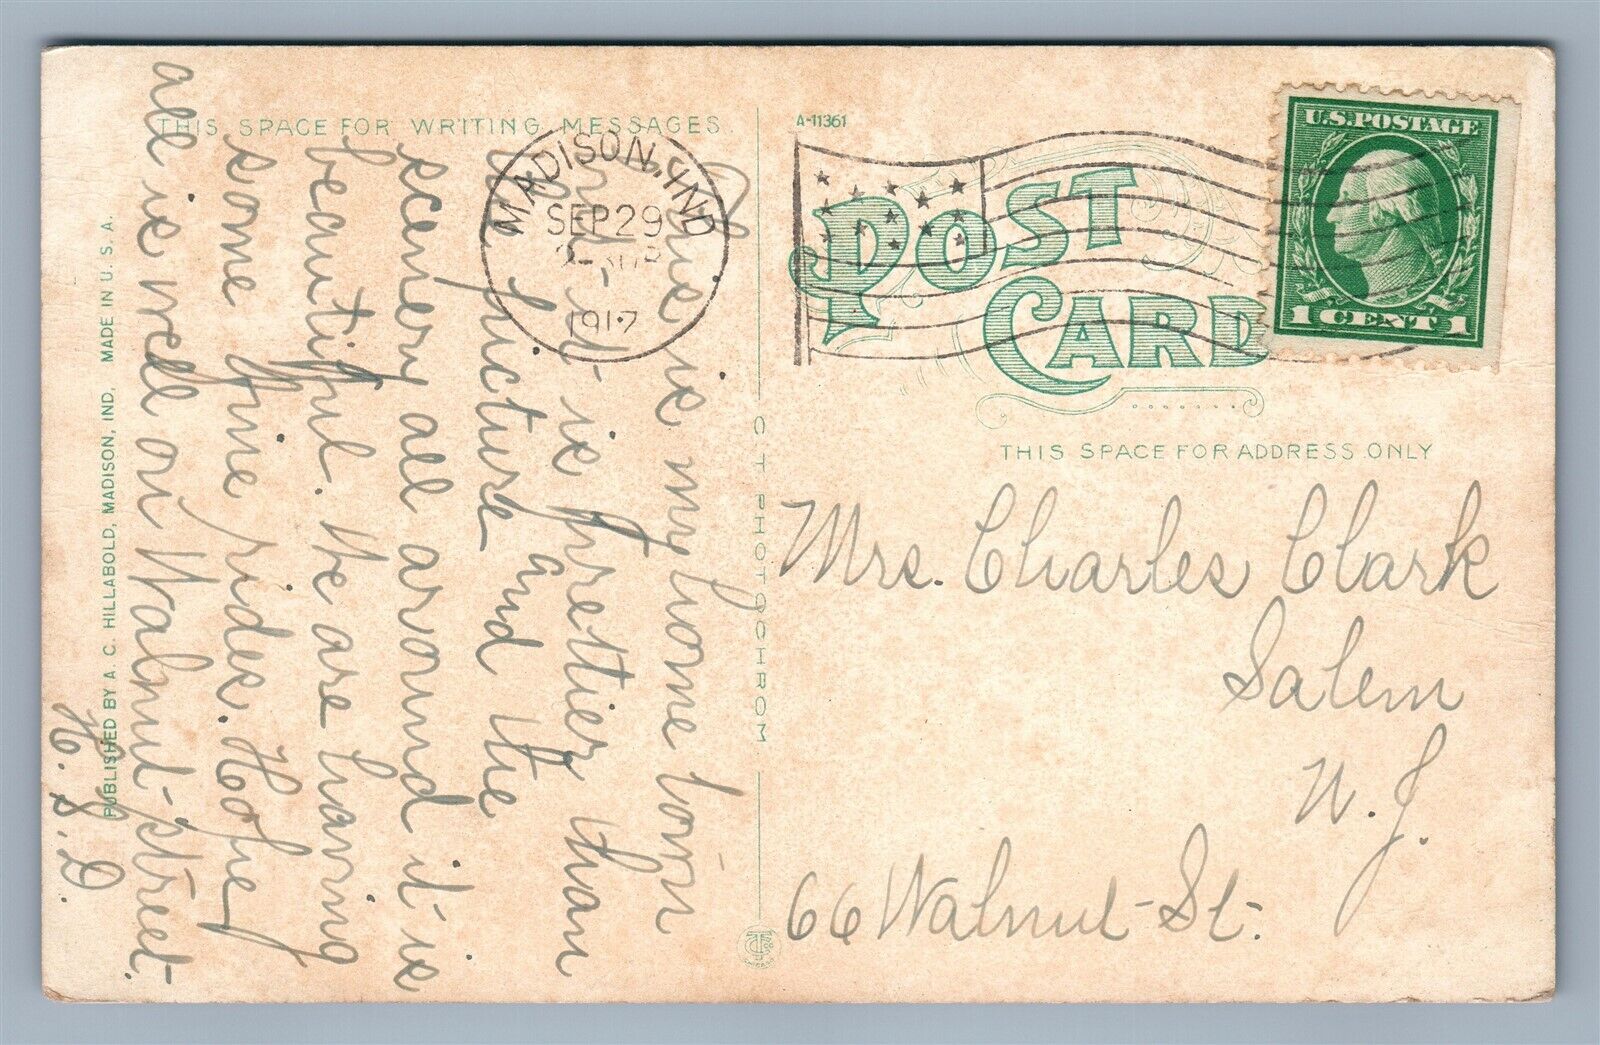 THIS SPACE FOR WRITING MESSAGES
This is my home town
and it is prettier than
the picture and the
scenery all around it is
beautiful. We are having
some fine rides. Hope
all is well on Walnut-street.
H. S. D.
PUBLISHED BY A. C. HILLABOLD, MADISON, IND. MADE IN U. S. A.
C T PHOTOCHROM
MADISON, IND
SEP 29
1917
A-11361
POST CARD
U.S. POSTAGE
1 CENT 1
THIS SPACE FOR ADDRESS ONLY
Mrs. Charles Clark
Salem
N. J.
66 Walnut-St.